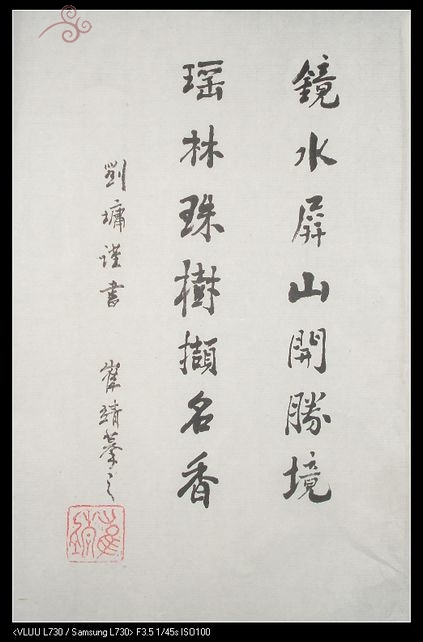 鏡水屏山開勝境
瑶林珠樹擷名香
劉墉謹書 崔靖摹之
<VLUU L730 / Samsung L730> F3.5 1/45s ISO100